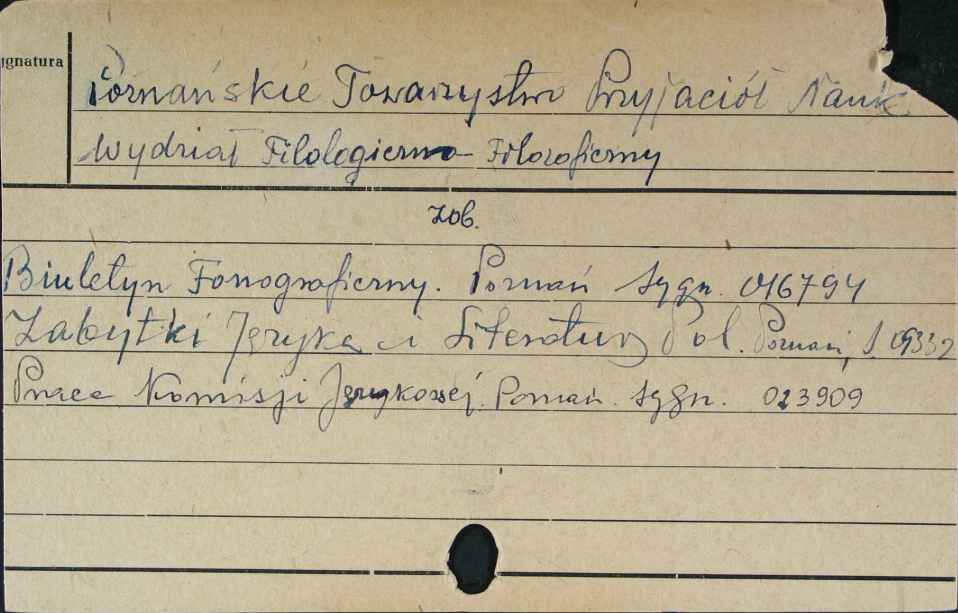 ygnatura
Poznańskie Towarzystwo Przyjaciół Nauk
Wydział Filologiczno-Filozoficzny
zob.
Biuletyn Fonograficzny. Poznań sygn. 016794
Zabytki Języka i Literatury Pol. Poznań, S.
Prace Komisji Językowej. Poznań. sygn. 023909